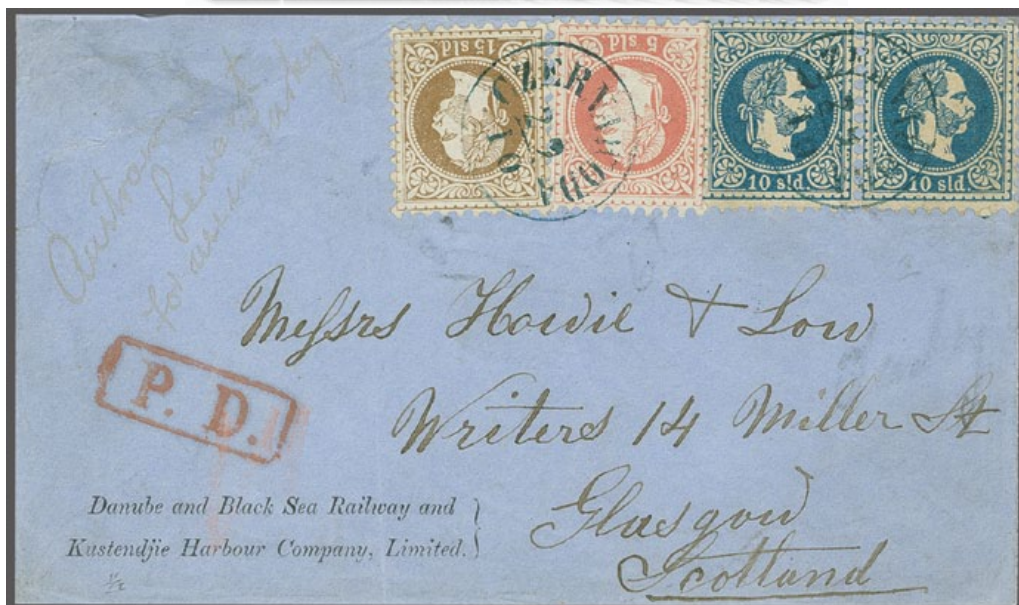 15 sld.
5 sld.
10 sld.
10 sld.
CZERVAVODA
Austrian
Levant
for
Meſsrs Howie & Low
Writers 14 Miller St
Glasgow
Scotland
P. D.
Danube and Black Sea Railway and
Kustendjie Harbour Company, Limited.